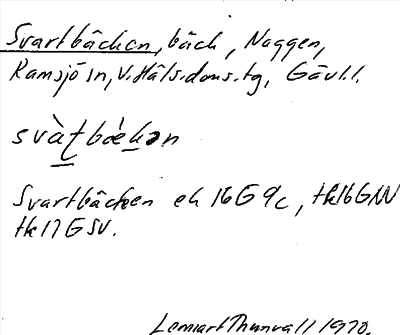 Svartbäcken, bäck, Naggen,
Ramsjö sn, V. Häls. doms. tg, Gävl. l.
svàt̠bæ̀k̠ən
Svartbäcken ek 16G 9c, tk16GNV
tk17GSV.
Lennart Thunvall 1970.